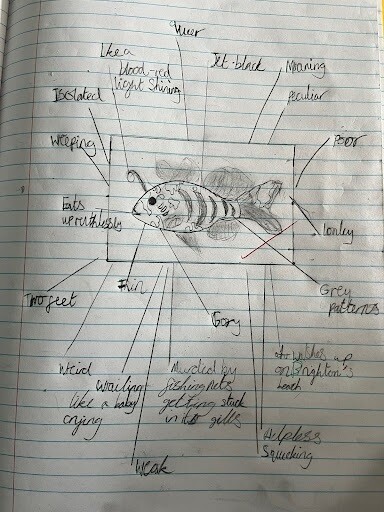 Like a
blood-red
light Shining
Jet-black
Moaning
peculiar
Isolated
Weeping
Poor
Eats
lonley
Two feet
Thin
Grey
patterns
Gory
Weird
Wailing
like a baby
crying
by
fishing nets
getting stuck
in its gills
washes up
on Brighton's
beach
Helpless
Weak